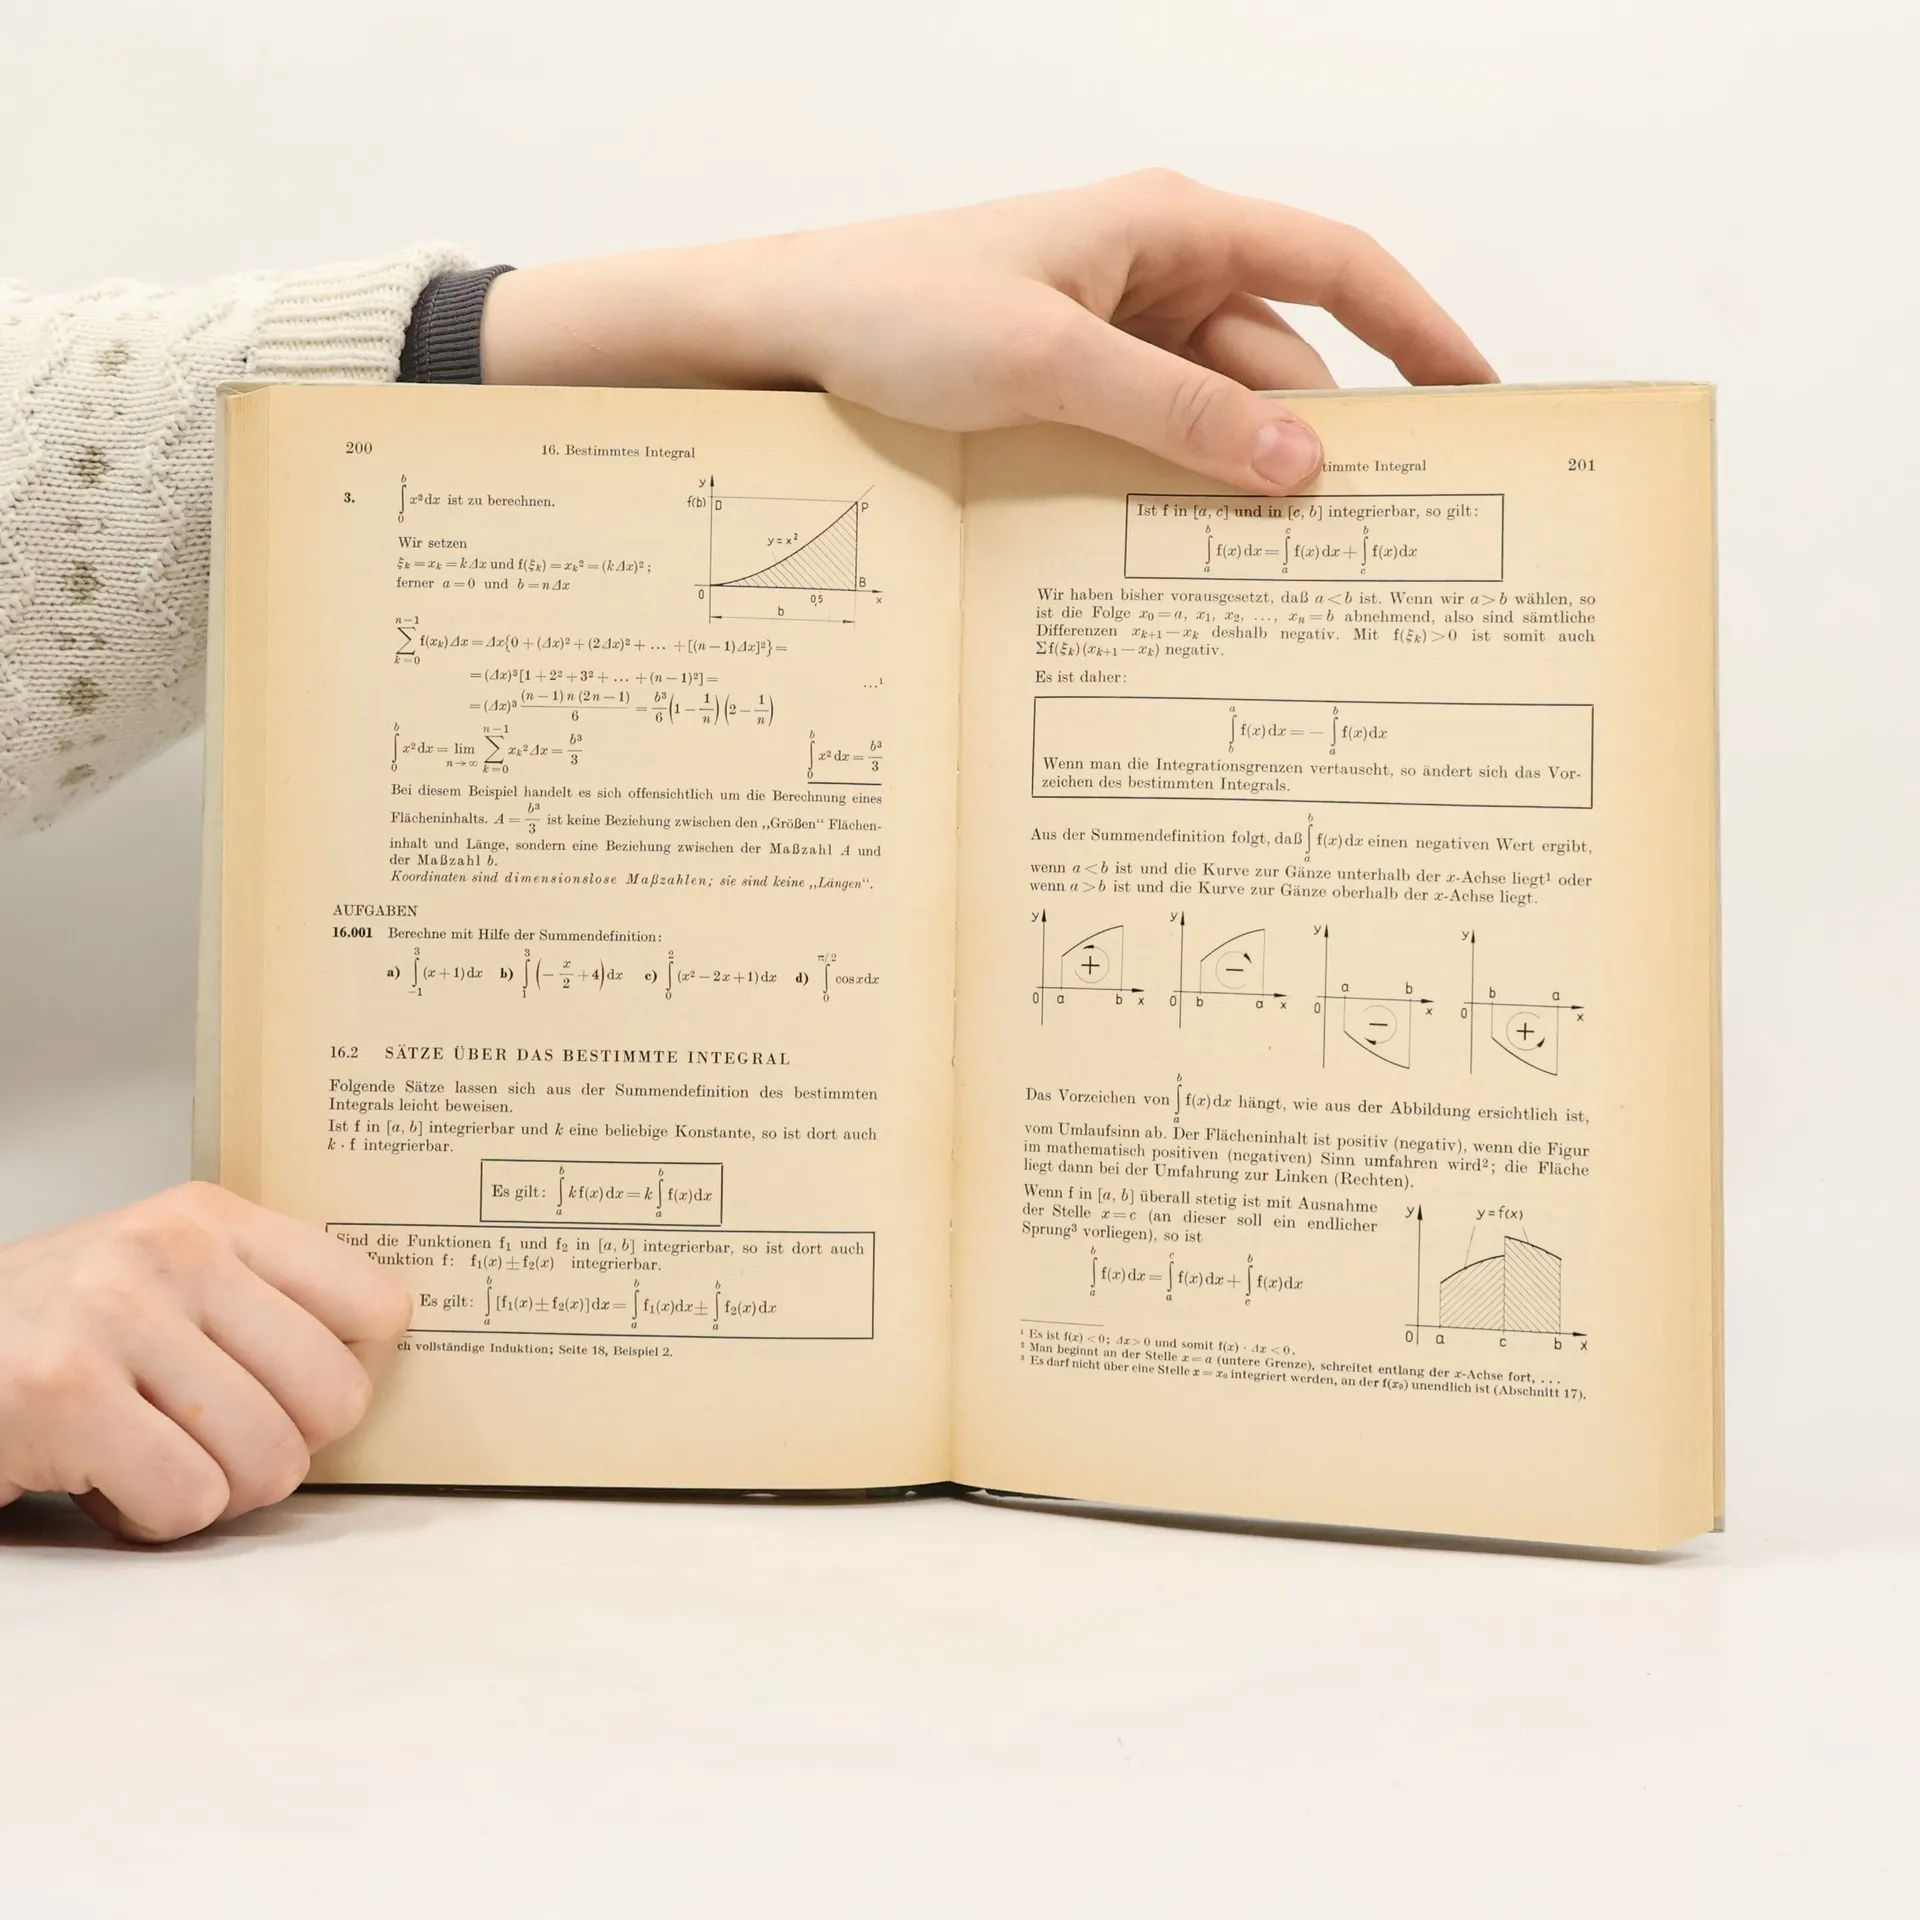 200
16. Bestimmtes Integral
3. ∫₀ᵇ x²dx ist zu berechnen.
Wir setzen
ξₖ = xₖ = kΔx und f(ξₖ) = xₖ² = (kΔx)²;
ferner a = 0 und b = nΔx
y
f(b) D P
y = x²
B
0 0,5 x
b
∑ₖ₌₀ⁿ⁻¹ f(xₖ)Δx = Δx{0 + (Δx)² + (2Δx)² + ... + [(n − 1)Δx]²} =
= (Δx)³[1 + 2² + 3² + ... + (n − 1)²] = ...¹
= (Δx)³ (n − 1) n (2n − 1)/6 = b³/6 (1 − 1/n) (2 − 1/n)
∫₀ᵇ x²dx = lim n→∞ ∑ₖ₌₀ⁿ⁻¹ xₖ²Δx = b³/3 ∫₀ᵇ x²dx = b³/3
Bei diesem Beispiel handelt es sich offensichtlich um die Berechnung eines
Flächeninhalts. A = b³/3 ist keine Beziehung zwischen den „Größen“ Flächen-
inhalt und Länge, sondern eine Beziehung zwischen der Maßzahl A und
der Maßzahl b.
Koordinaten sind dimensionslose Maßzahlen; sie sind keine „Längen“.
AUFGABEN
16.001 Berechne mit Hilfe der Summendefinition:
a) ∫₋₁³ (x + 1)dx b) ∫₁³ (− x/2 + 4)dx c) ∫₀² (x² − 2x + 1)dx d) ∫₀^(π/2) cosxdx
16.2 SÄTZE ÜBER DAS BESTIMMTE INTEGRAL
Folgende Sätze lassen sich aus der Summendefinition des bestimmten
Integrals leicht beweisen.
Ist f in [a, b] integrierbar und k eine beliebige Konstante, so ist dort auch
k · f integrierbar.
Es gilt: ∫ₐᵇ kf(x)dx = k ∫ₐᵇ f(x)dx
Sind die Funktionen f₁ und f₂ in [a, b] integrierbar, so ist dort auch
Funktion f: f₁(x) ± f₂(x) integrierbar.
Es gilt: ∫ₐᵇ [f₁(x) ± f₂(x)]dx = ∫ₐᵇ f₁(x)dx ± ∫ₐᵇ f₂(x)dx
ch vollständige Induktion; Seite 18, Beispiel 2.
timmte Integral
201
Ist f in [a, c] und in [c, b] integrierbar, so gilt:
∫ₐᵇ f(x)dx = ∫ₐᶜ f(x)dx + ∫꜀ᵇ f(x)dx
Wir haben bisher vorausgesetzt, daß a < b ist. Wenn wir a > b wählen, so
ist die Folge x₀ = a, x₁, x₂, ..., xₙ = b abnehmend, also sind sämtliche
Differenzen xₖ₊₁ − xₖ deshalb negativ. Mit f(ξₖ) > 0 ist somit auch
Σf(ξₖ)(xₖ₊₁ − xₖ) negativ.
Es ist daher:
∫_b^a f(x)dx = − ∫ₐᵇ f(x)dx
Wenn man die Integrationsgrenzen vertauscht, so ändert sich das Vor-
zeichen des bestimmten Integrals.
Aus der Summendefinition folgt, daß ∫ₐᵇ f(x)dx einen negativen Wert ergibt,
wenn a < b ist und die Kurve zur Gänze unterhalb der x-Achse liegt¹ oder
wenn a > b ist und die Kurve zur Gänze oberhalb der x-Achse liegt.
y + 0 a b x
y − 0 b a x
y a b 0 − x
y b a 0 + x
Das Vorzeichen von ∫ₐᵇ f(x)dx hängt, wie aus der Abbildung ersichtlich ist,
vom Umlaufsinn ab. Der Flächeninhalt ist positiv (negativ), wenn die Figur
im mathematisch positiven (negativen) Sinn umfahren wird²; die Fläche
liegt dann bei der Umfahrung zur Linken (Rechten).
Wenn f in [a, b] überall stetig ist mit Ausnahme
der Stelle x = c (an dieser soll ein endlicher
Sprung³ vorliegen), so ist
∫ₐᵇ f(x)dx = ∫ₐᶜ f(x)dx + ∫꜀ᵇ f(x)dx
y y = f(x)
0 a c b x
¹ Es ist f(x) < 0; Δx > 0 und somit f(x) · Δx < 0.
² Man beginnt an der Stelle x = a (untere Grenze), schreitet entlang der x-Achse fort, ...
³ Es darf nicht über eine Stelle x = x₀ integriert werden, an der f(x₀) unendlich ist (Abschnitt 17).